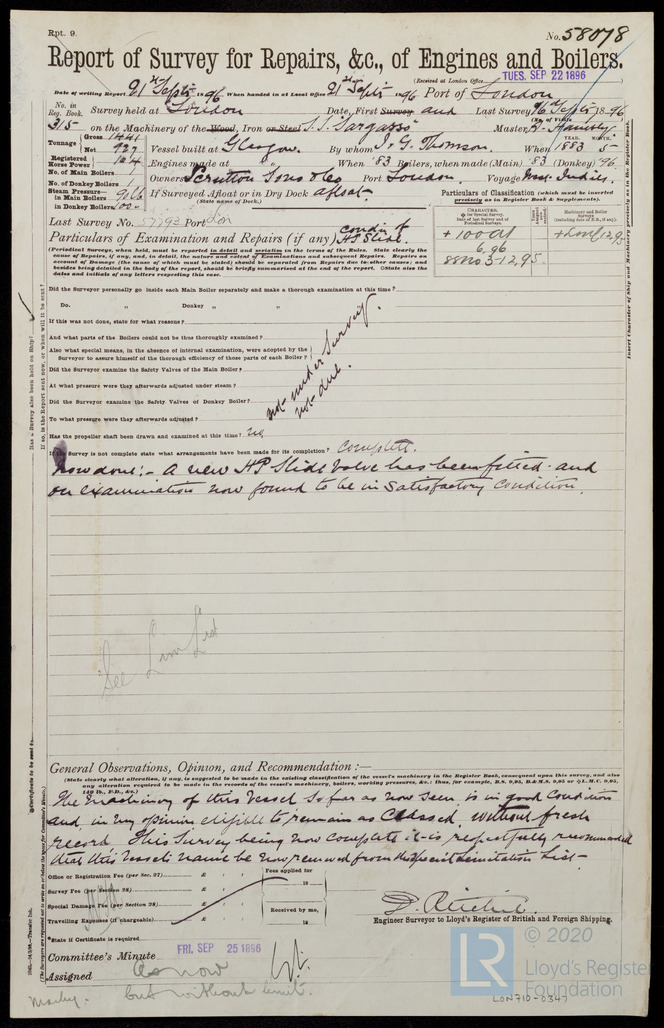 Rpt. 9.
No. 58078
Report of Survey for Repairs, &c., of Engines and Boilers.
(Received at London Office TUES. SEP 22 1896)
Date of writing Report 21st Septr 1896 When handed in at Local Office 21st Septr 1896 Port of London
No. in Reg. Book. 315 Survey held at London Date, First Survey and Last Survey 16th Septr 1896
(No. of Visits
on the Machinery of the Wood, Iron or Steel S.S. Sargasso Master
Tonnage Gross 1441 Net 927 Vessel built at Glasgow. By whom J. & G. Thomson. When YEAR. 1883 MONTH. 5
Registered Horse Power 124 Engines made at When '83 Boilers, when made (Main) '83 (Donkey) '96
No. of Main Boilers 1 Owners Scrutton Sons & Co Port London. Voyage West Indies.
No. of Donkey Boilers 1
Steam Pressure in Main Boilers 90 lb If Surveyed Afloat or in Dry Dock afloat
in Donkey Boilers (State name of Dock.)
Last Survey No. 57793 Port Lon
Particulars of Classification (which must be inserted precisely as in Register Book & Supplements).
CHARACTER.
Machinery and Boiler Surveys
+ 100 A1
6,96
+ LMC 12,95
Particulars of Examination and Repairs (if any) Condn of HP Slide.
(Periodical Surveys, when held, must be reported in detail and seriatim in the terms of the Rules. State clearly the
cause of Repairs, if any, and, in detail, the nature and extent of Examinations and subsequent Repairs. Repairs on
account of Damage (the cause of which must be stated) should be separated from Repairs due to other causes; and
besides being detailed in the body of the report, should be briefly summarised at the end of the report. State also the
dates and initials of any letters respecting this case.
Did the Surveyor personally go inside each Main Boiler separately and make a thorough examination at this time?
Do. „ Donkey „ „
If this was not done, state for what reasons?
And what parts of the Boilers could not be thoroughly examined?
Also what special means, in the absence of internal examination, were adopted by the
Surveyor to assure himself of the thorough efficiency of those parts of each Boiler?
Did the Surveyor examine the Safety Valves of the Main Boiler?
At what pressure were they afterwards adjusted under steam?
Did the Surveyor examine the Safety Valves of Donkey Boiler?
To what pressure were they afterwards adjusted?
not under Survey.
not due.
Has the propeller shaft been drawn and examined at this time? no
If the Survey is not complete state what arrangements have been made for its completion? Complete.
Now done:- A new HP Slide Valve has been fitted and
on examination now found to be in satisfactory condition.
See Lim List
General Observations, Opinion, and Recommendation :—
(State clearly what alteration, if any, is suggested to be made in the existing classification of the vessel's machinery in the Register Book, consequent upon this survey, and also
any alteration required to be made in the records of the vessel's machinery, boilers, working pressures, &c.: thus, for example, B.S. 9,95, B.&M.S. 9,95 or L.M.C. 9,95,
140 lb., F.D., &c.)
The machinery of this Vessel so far as now seen, is in good Condition
and, in my opinion eligible to remain as Classed, without fresh
record. This Survey being now complete it is respectfully recommended
that this Vessel's name be now removed from the Special Limitation List -
Office or Registration Fee (per Sec. 27) £ : : Fees applied for
Survey Fee (per Section 28) £ : : 18
Special Damage Fee (per Section 28) £ : : Received by me,
Travelling Expenses (if chargeable) £ : : 18
D. Ritchie.
Engineer Surveyor to Lloyd's Register of British and Foreign Shipping.
*State if Certificate is required
Committee's Minute FRI. SEP 25 1896
Assigned As now
but without limit.
LR © 2020
Lloyd's Register
Foundation
LON710-0347